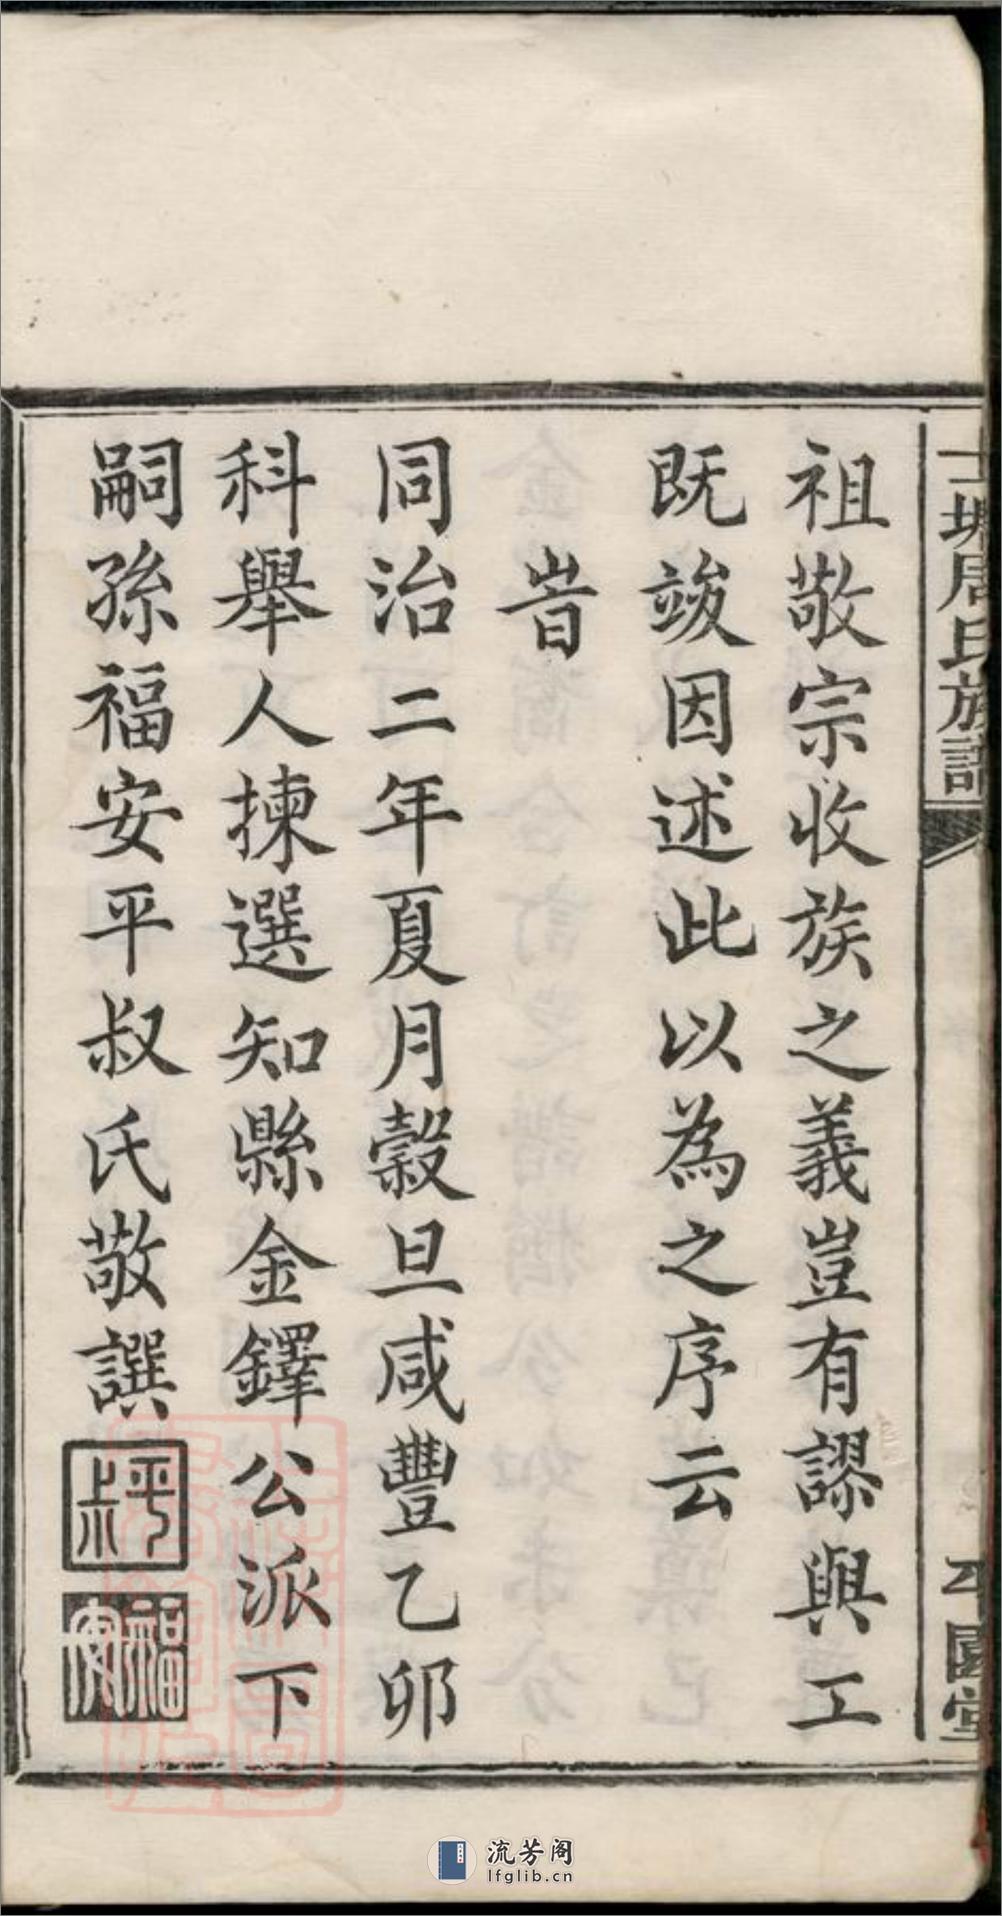 祖敬宗收族之義豈有謬與工
既竣因述此以為之序云
旹
同治二年夏月穀旦咸豐乙卯
科舉人揀選知縣金鐸公派下
嗣孫福安平叔氏敬譔
平叔
福安
周氏族譜
流芳阁
lfglib.cn